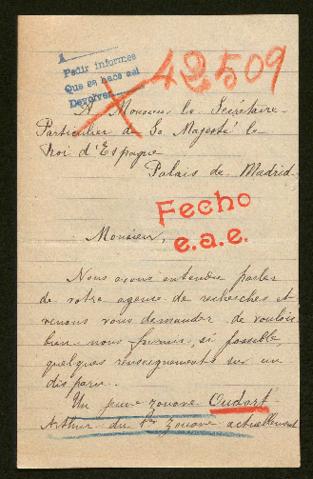 Pedir informes
Que se hace así
Devolver
42509
A Monsieur le Secrétaire
Particulier de Sa Majesté le
Roi d'Espagne
Palais de Madrid.
Fecho
e.a.e.
Monsieur,
Nous avons entendu parler
de votre agence de recherches et
venons vous demander de vouloir
bien nous fournir, si possible,
quelques renseignements sur un
disparu.
Un jeune zouave Oudort
Arthur du 1er Zouave actuellement